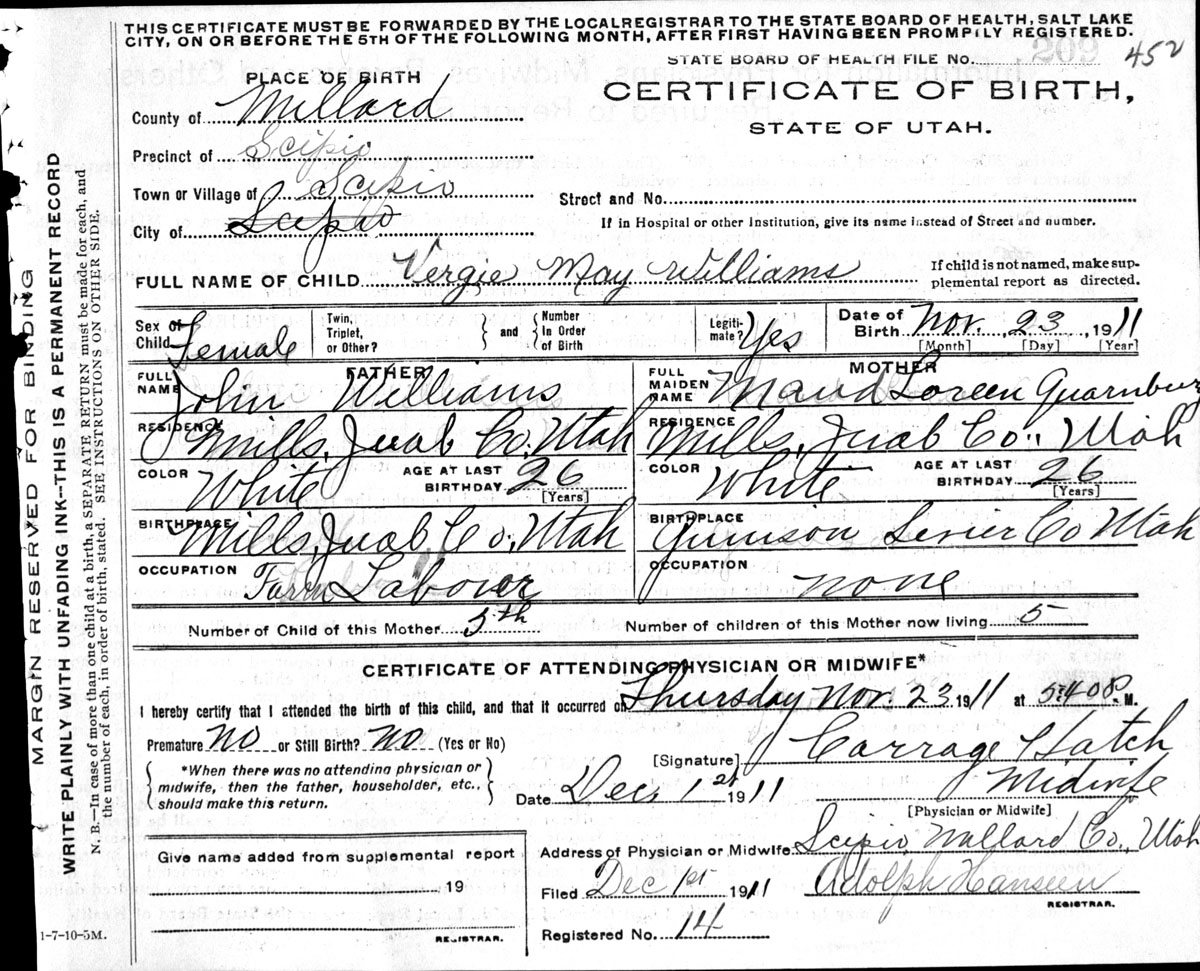 THIS CERTIFICATE MUST BE FORWARDED BY THE LOCAL REGISTRAR TO THE STATE BOARD OF HEALTH, SALT LAKE
CITY, ON OR BEFORE THE 5TH OF THE FOLLOWING MONTH, AFTER FIRST HAVING BEEN PROMPTLY REGISTERED.
STATE BOARD OF HEALTH FILE No. 209 452
PLACE OF BIRTH
CERTIFICATE OF BIRTH,
STATE OF UTAH.
County of Millard
Precinct of Scipio
Town or Village of Scipio
Street and No.
City of Scipio
If in Hospital or other Institution, give its name instead of Street and number.
FULL NAME OF CHILD Vergie May Williams
If child is not named, make sup-
plemental report as directed.
Sex of Child Female
Twin, Triplet, or Other?
and
Number In Order of Birth
Legiti-mate? Yes
Date of Birth Nov. 23, 1911
[Month] [Day] [Year]
FATHER
FULL NAME John Williams
RESIDENCE Mills, Juab Co., Utah
COLOR White
AGE AT LAST BIRTHDAY 26
[Years]
BIRTHPLACE Mills, Juab Co., Utah
OCCUPATION Farm Labover
MOTHER
FULL MAIDEN NAME Maud Loreen
RESIDENCE Mills, Juab Co., Utah
COLOR White
AGE AT LAST BIRTHDAY 26
[Years]
BIRTHPLACE Gunnison Sevier Co Utah
OCCUPATION none
Number of Child of this Mother 5th
Number of children of this Mother now living 5
CERTIFICATE OF ATTENDING PHYSICIAN OR MIDWIFE*
I hereby certify that I attended the birth of this child, and that it occurred on Thursday Nov. 23 1911 at 5:40 P. M.
Premature No or Still Birth? No (Yes or No)
*When there was no attending physician or
midwife, then the father, householder, etc.,
should make this return.
[Signature] Hatch
Date Dec, 1st 1911
Midwife
[Physician or Midwife]
Give name added from supplemental report
19
REGISTRAR.
Address of Physician or Midwife Scipio, Millard Co., Utah
Filed Dec 1st 1911 Adolph Hanseen
REGISTRAR.
Registered No. 14
1-7-10-5M.
MARGIN RESERVED FOR BINDING
WRITE PLAINLY WITH UNFADING INK--THIS IS A PERMANENT RECORD
N. B.—In case of more than one child at a birth, a SEPARATE RETURN must be made for each, and
the number of each, in order of birth, stated. SEE INSTRUCTIONS ON OTHER SIDE.